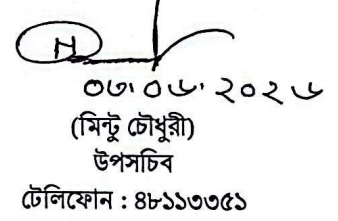 ০৩.০৬.২০২৬
(মিন্টু চৌধুরী)
উপসচিব
টেলিফোন : ৪৮১১৩৩৫১